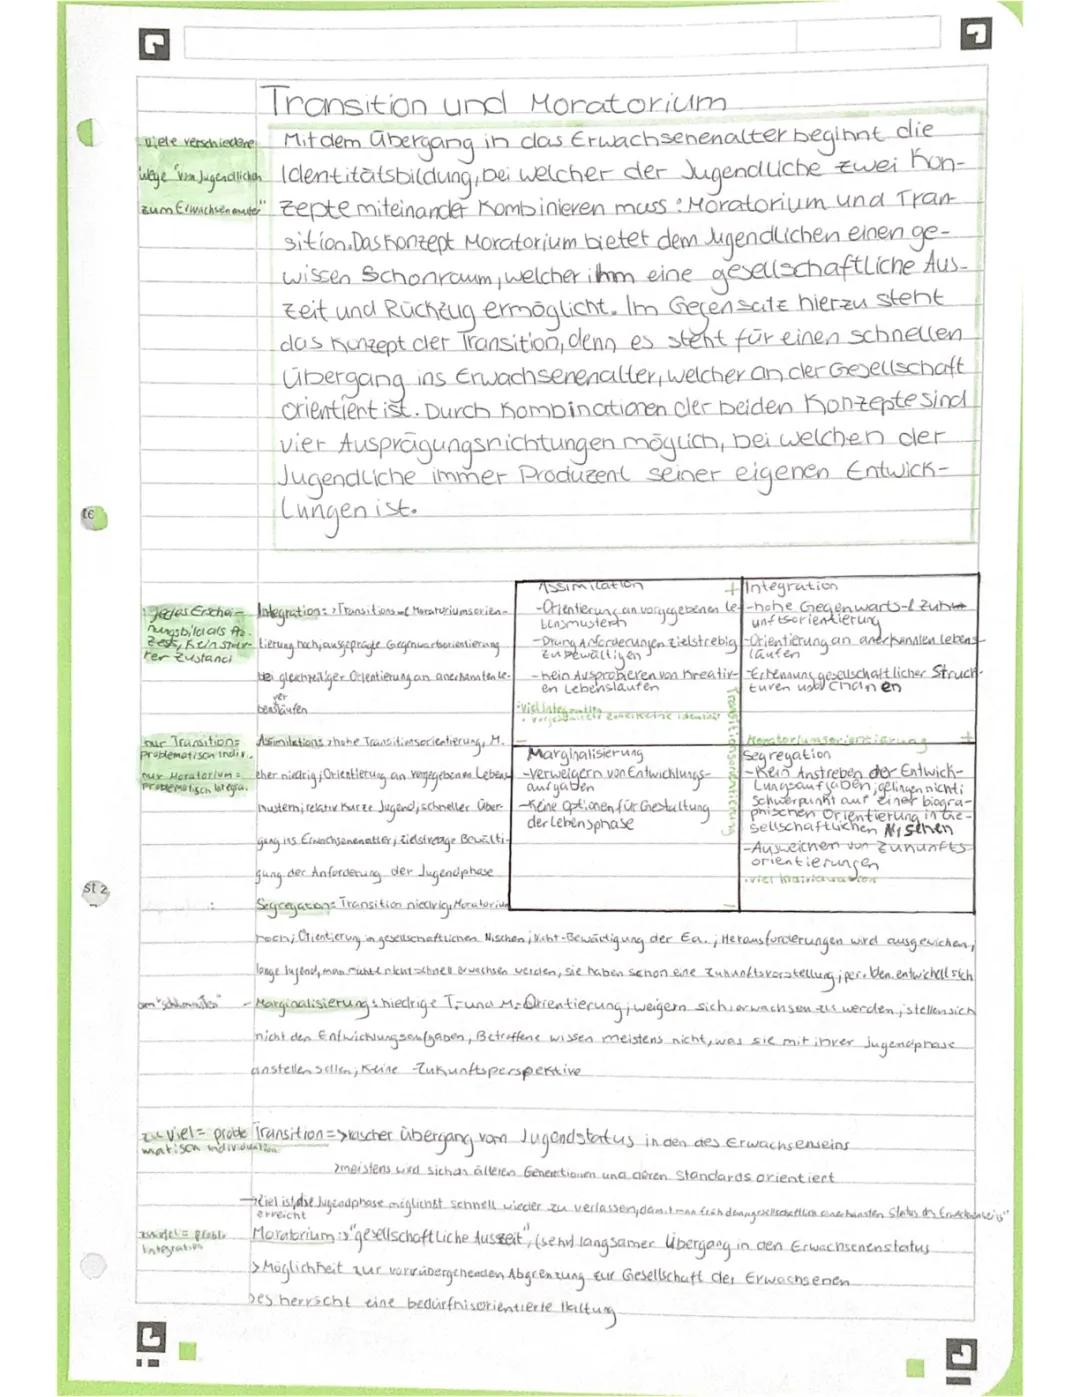 Transition und Moratorium
viele verschiedene
Wege "vom Jugendlichen
zum Erwachsenenalter"
Mit dem Übergang in das Erwachsenenalter beginnt die
Identitätsbildung, bei welcher der Jugendliche zwei Kon-
zepte miteinander kombinieren muss: Moratorium und Tran-
sition. Das Konzept Moratorium bietet dem Jugendlichen einen ge-
wissen Schonraum, welcher ihm eine gesellschaftliche Aus-
zeit und Rückzug ermöglicht. Im Gegensatz hierzu steht
das Konzept der Transition, denn es steht für einen schnellen
Übergang ins Erwachsenenalter, welcher an der Gesellschaft
orientiert ist. Durch Kombinationen der beiden Konzepte sind
vier Ausprägungsrichtungen möglich, bei welchen der
Jugendliche immer Produzent seiner eigenen Entwick-
lungen ist.
jedes Erschei-
nungsbild als
kein star-
rer Zustand
Integration: > Transitions- & Moratoriumsorien-
tierung hoch, ausgeprägte Gegenwartsorientierung
bei gleichzeitiger Orientierung an anerkannten Le-
bensläufen
nur Transition =
problematisch Indiv.
nur Moratorium =
problematisch Integra.
Assimilation: > hohe Transitionsorientierung, M.
eher niedrig; Orientierung an vorgegebenen Lebens
mustern; relativ kurze Jugend, schneller Über-
gang ins Erwachsenenalter; zielstrebige Bewälti-
gung der Anforderung der Jugendphase
Assimilation
-Orientierung an vorgegebenen Le-
bensmustern
-Drang Anforderungen zielstrebig
zu bewältigen
-kein Ausprobieren von kreativ-
en Lebensläufen
·viel Integration
+
Integration
-hohe Gegenwarts- & Zuk
unftsorientierung
-Orientierung an anerkannten Lebens-
läufen
-Erkennung gesellschaftlicher Struck-
turen und Chancen
Transitionsorientierung
Moratoriumsorientierung
+
-
Marginalisierung
-Verweigern von Entwicklungs-
aufgaben
-Keine Optionen für Gestaltung
der Lebensphase
-
Segregation
-Kein Anstreben der Entwick-
lungsaufgaben, gelingen nicht
Schwerpunkt auf einer biogra-
phischen Orientierung in Ge-
sellschaftlichen Nischen
-Ausweichen von Zukunfts-
orientierungen
·viel Individuation
Segregation: Transition niedrig, Moratorium
hoch; Orientierung in gesellschaftlichen Nischen; Nicht-Bewältigung der Ea.; Herausforderungen wird ausgewichen,
lange Jugend, man möchte nicht schnell erwachsen werden, sie haben schon eine Zukunftsvorstellung; entwickelt sich
am "schlimmsten"
- Marginalisierung: niedrige T.- und M.-Orientierung; weigern sich erwachsen zu werden, stellen sich
nicht den Entwicklungsaufgaben, Betroffene wissen meistens nicht, was sie mit ihrer Jugendphase
anstellen sollen, keine Zukunftsperspektive
zu viel = proble
matisch Individuation
Transition => rascher Übergang vom Jugendstatus in den des Erwachsenseins
> meistens wird sich an älteren Generationen und deren Standards orientiert
→ Ziel ist, die Jugendphase möglichst schnell wieder zu verlassen, damit man den gesellschaftlich anerkannten Status des Erwachsenseins
erreicht
zu viel = probl.
Integration
Moratorium: > "gesellschaftliche Auszeit", (sehr) langsamer Übergang in den Erwachsenenstatus
> Möglichkeit zur vorrübergehenden Abgrenzung zur Gesellschaft der Erwachsenen
> es herrscht eine bedürfnisorientierte Haltung